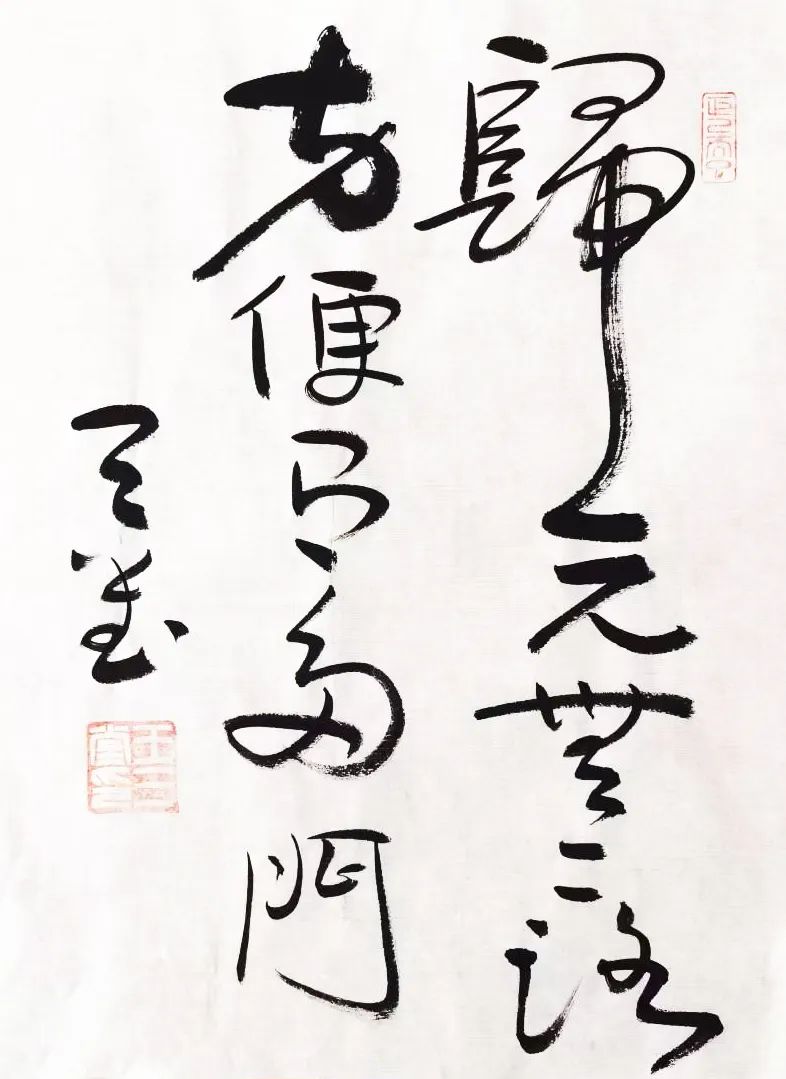 歸元無二路
方便有多門